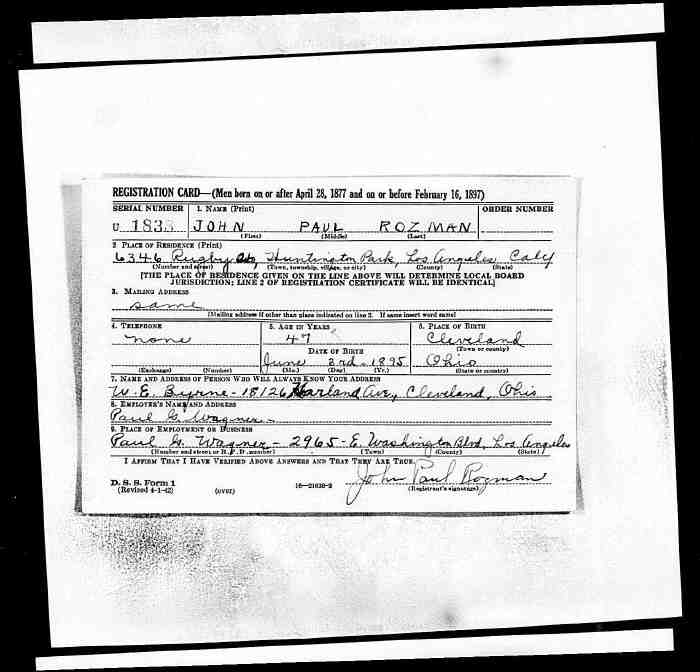 REGISTRATION CARD—(Men born on or after April 28, 1877 and on or before February 16, 1897)
SERIAL NUMBER 1. NAME (Print) ORDER NUMBER
U 1833 JOHN PAUL ROZMAN
(First) (Middle) (Last)
2. PLACE OF RESIDENCE (Print)
6346 Rugby, Huntington Park, Los Angeles Calif
(Number and street) (Town, township, village, or city) (County) (State)
[THE PLACE OF RESIDENCE GIVEN ON THE LINE ABOVE WILL DETERMINE LOCAL BOARD
JURISDICTION; LINE 2 OF REGISTRATION CERTIFICATE WILL BE IDENTICAL]
3. MAILING ADDRESS
same
[Mailing address if other than place indicated on line 2. If same insert word same]
4. TELEPHONE 5. AGE IN YEARS 6. PLACE OF BIRTH
none 47 Cleveland
(Town or county)
DATE OF BIRTH
June 3rd - 1895 Ohio
(Exchange) (Number) (Mo.) (Day) (Yr.) (State or country)
7. NAME AND ADDRESS OF PERSON WHO WILL ALWAYS KNOW YOUR ADDRESS
W. E. Byrne - 18126 Harland Ave, Cleveland, Ohio
8. EMPLOYER'S NAME AND ADDRESS
Paul G. Wagner -
9. PLACE OF EMPLOYMENT OR BUSINESS
Paul G. Wagner - 2965 - E. Washington Blvd, Los Angeles
(Number and street or R. F. D. number) (Town) (County) (State)
I AFFIRM THAT I HAVE VERIFIED ABOVE ANSWERS AND THAT THEY ARE TRUE.
John Paul Rozman
D. S. S. Form 1 (Registrant's signature)
(Revised 4-1-42) (over) 16—21630-2